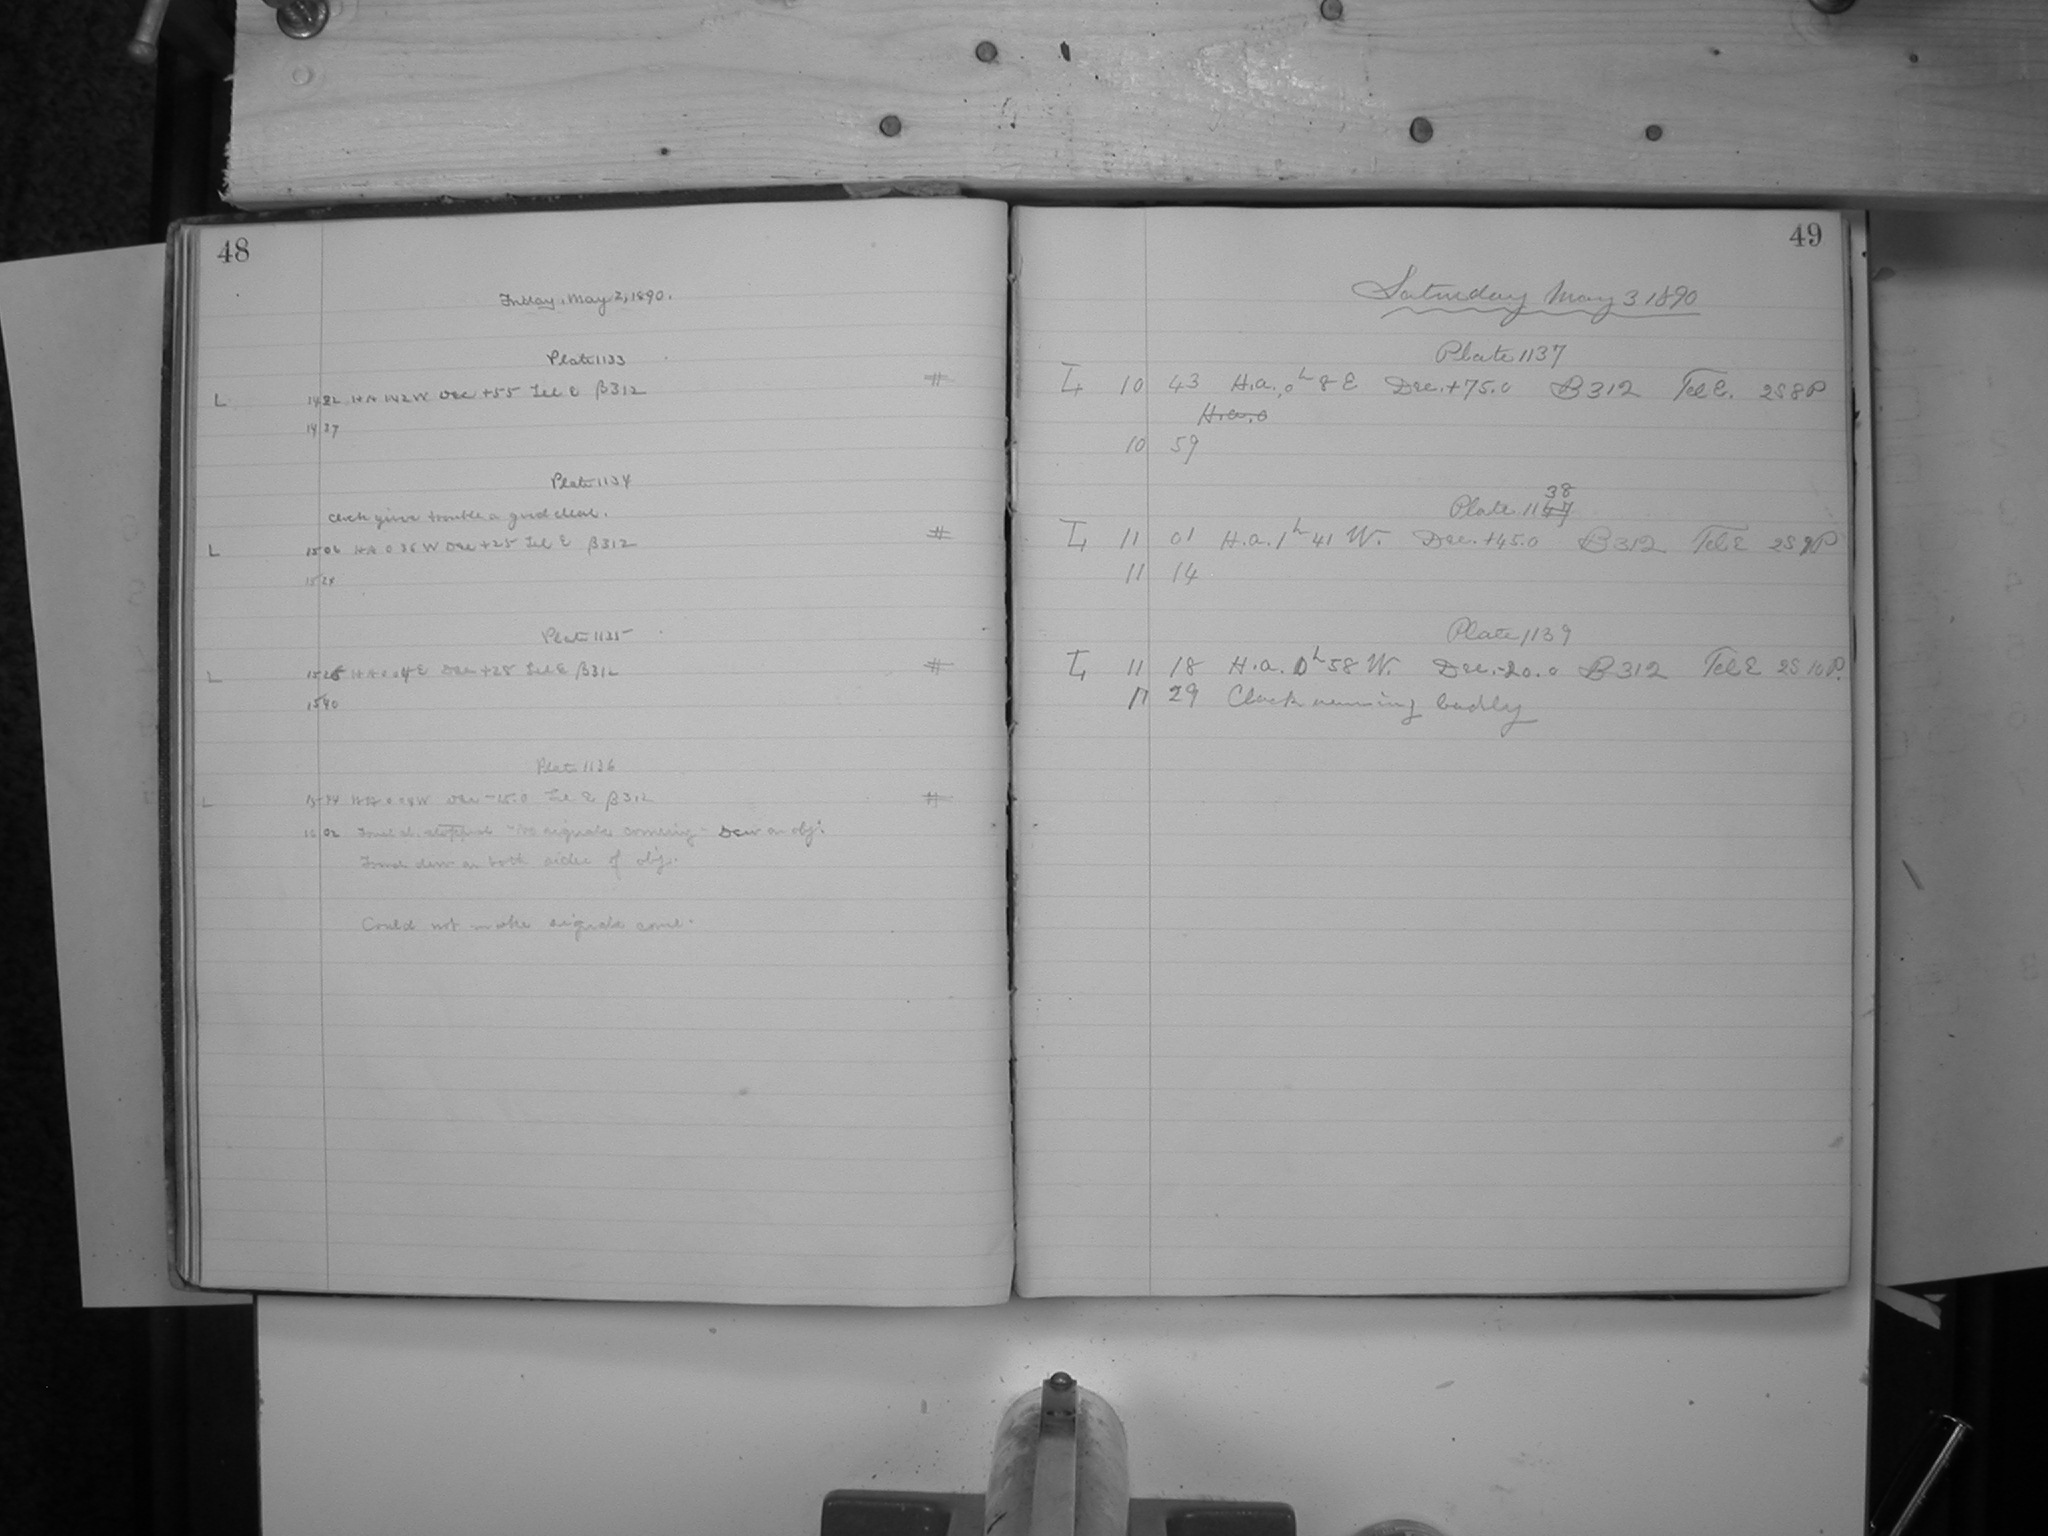 48
Friday, May 2, 1890.
Plate 1133
L 14 22 HA 1 42 W Dec +55 Tel E β312 #
14 37
Plate 1134
Clock gives trouble a good deal.
L 15 06 HA 0 36 W Dec +25 Tel E β312 #
15 24
Plate 1135
L 15 26 HA 0 04 E Dec +25 Tel E β312 #
15 40
Plate 1136
L HA W Dec -15.0 Tel E β312 #
16 02 Found cl. stopped - No signals coming - Dew on obj.
Found dew on both sides of obj.
Could not make signals come.
49
Saturday May 3 1890
Plate 1137
L 10 43 H.a. 0 h 8 E Dec. +75.0 B312 Tel E. 2S 8P
H.a. 0
10 59
38
Plate 1147
L 11 01 H.a. 1 h 41 W. Dec. +45.0 B312 Tel E 2S 9P
11 14
Plate 1139
L 11 18 H.a. 0 h 58 W. Dec. -20.0 B312 Tel E 2S 10P.
11 29 Clock running badly